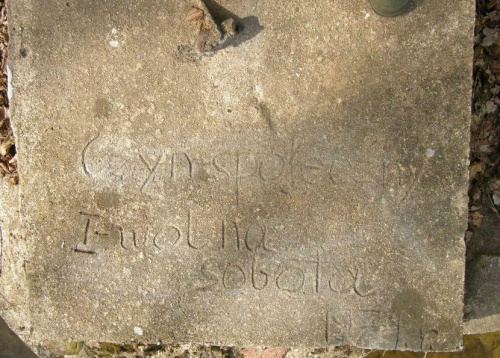 Czyn społeczny
I-wolna
sobota